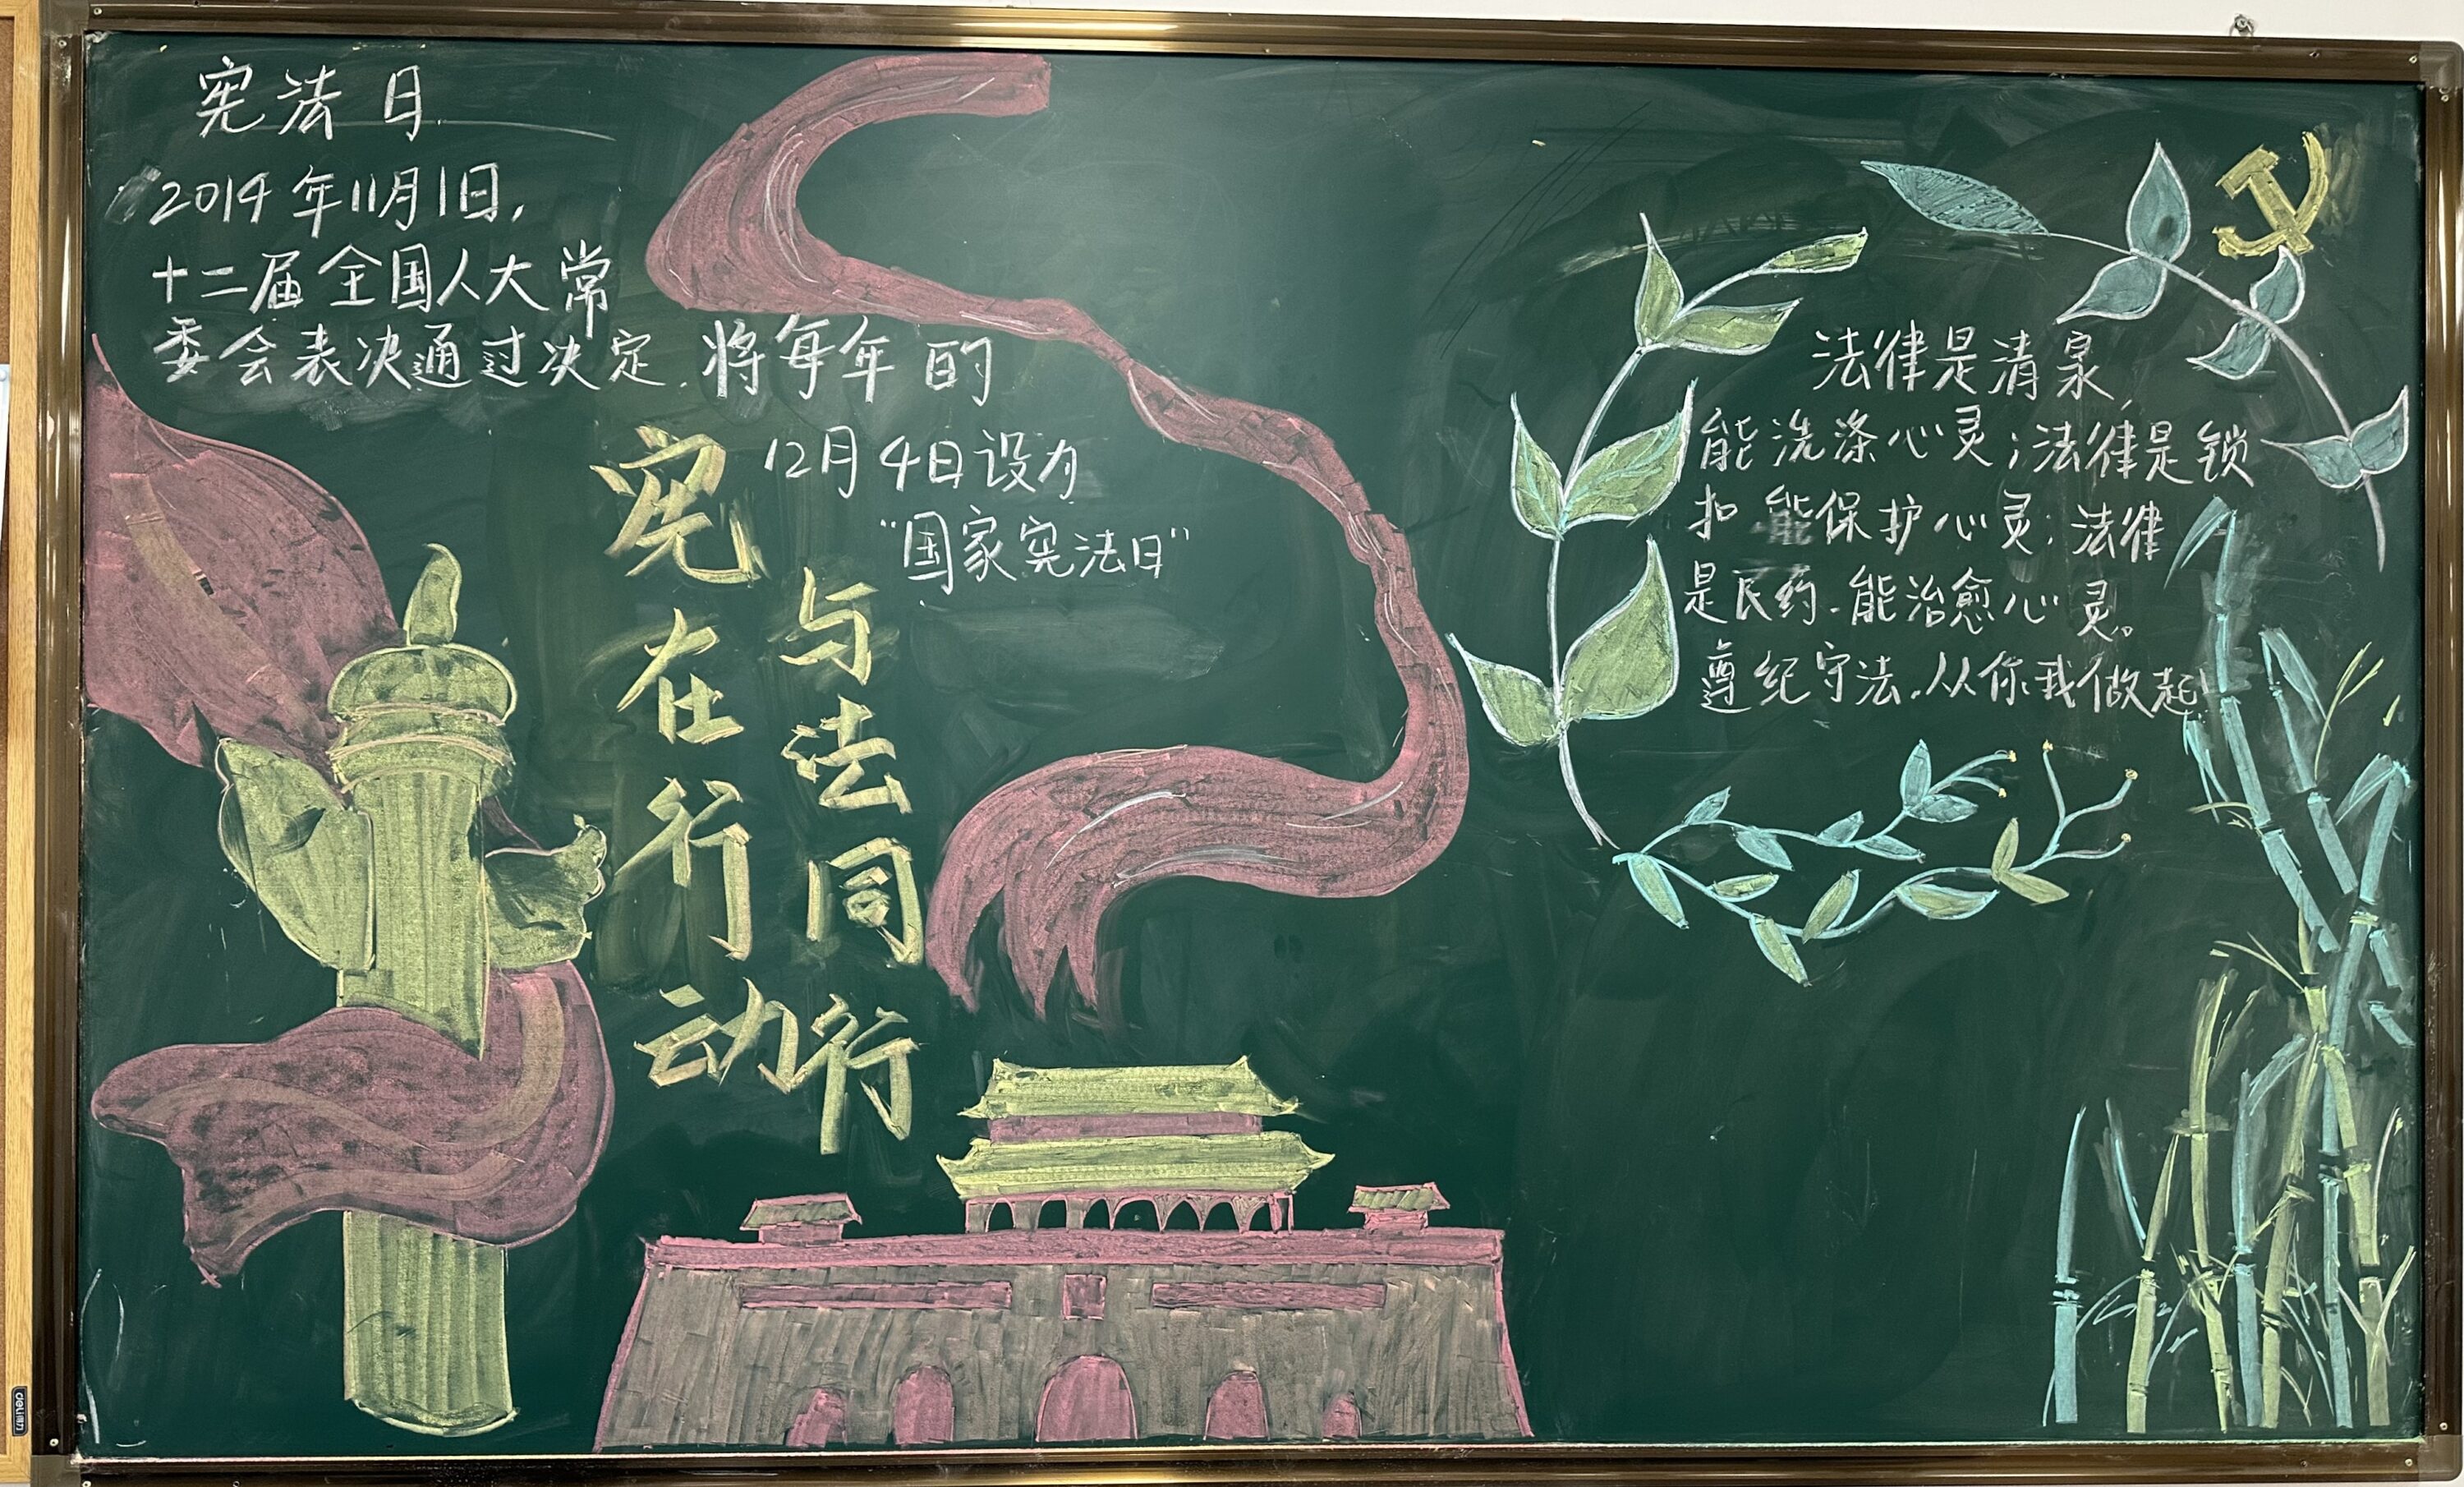 宪法日
2014年11月1日,
十二届全国人大常
委会表决通过决定,将每年的
12月4日设为
"国家宪法日"
宪在行动
与法同行
法律是清泉,
能洗涤心灵;法律是锁
扣能保护心灵;法律
是良药.能治愈心灵。
遵纪守法.从你我做起!
deli得力